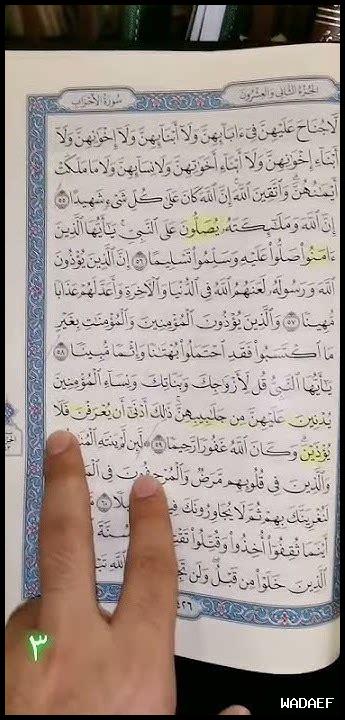 الجزء الثاني والعشرون سورة الأحزاب
لَّا جُنَاحَ عَلَيْهِنَّ فِىٓ ءَابَآئِهِنَّ وَلَآ أَبْنَآئِهِنَّ وَلَآ إِخْوَٰنِهِنَّ وَلَآ
أَبْنَآءِ إِخْوَٰنِهِنَّ وَلَآ أَبْنَآءِ أَخَوَٰتِهِنَّ وَلَا نِسَآئِهِنَّ وَلَا مَا مَلَكَتْ
أَيْمَٰنُهُنَّ ۗ وَٱتَّقِينَ ٱللَّهَ ۚ إِنَّ ٱللَّهَ كَانَ عَلَىٰ كُلِّ شَىْءٍ شَهِيدًا ٥٥
إِنَّ ٱللَّهَ وَمَلَٰٓئِكَتَهُۥ يُصَلُّونَ عَلَى ٱلنَّبِىِّ ۚ يَٰٓأَيُّهَا ٱلَّذِينَ
ءَامَنُوا۟ صَلُّوا۟ عَلَيْهِ وَسَلِّمُوا۟ تَسْلِيمًا ٥٦ إِنَّ ٱلَّذِينَ يُؤْذُونَ
ٱللَّهَ وَرَسُولَهُۥ لَعَنَهُمُ ٱللَّهُ فِى ٱلدُّنْيَا وَٱلْءَاخِرَةِ وَأَعَدَّ لَهُمْ عَذَابًا
مُّهِينًا ٥٧ وَٱلَّذِينَ يُؤْذُونَ ٱلْمُؤْمِنِينَ وَٱلْمُؤْمِنَٰتِ بِغَيْرِ
مَا ٱكْتَسَبُوا۟ فَقَدِ ٱحْتَمَلُوا۟ بُهْتَٰنًا وَإِثْمًا مُّبِينًا ٥٨
يَٰٓأَيُّهَا ٱلنَّبِىُّ قُل لِّأَزْوَٰجِكَ وَبَنَاتِكَ وَنِسَآءِ ٱلْمُؤْمِنِينَ
يُدْنِينَ عَلَيْهِنَّ مِن جَلَٰبِيبِهِنَّ ۚ ذَٰلِكَ أَدْنَىٰٓ أَن يُعْرَفْنَ فَلَا
يُؤْذَيْنَ ۗ وَكَانَ ٱللَّهُ غَفُورًا رَّحِيمًا ٥٩ ۞ لَّئِن لَّمْ يَنتَهِ
وَٱلَّذِينَ فِى قُلُوبِهِم مَّرَضٌ وَٱلْمُرْجِفُونَ فِى
لَنُغْرِيَنَّكَ بِهِمْ ثُمَّ لَا يُجَاوِرُونَكَ ٦٠
أَيْنَمَا ثُقِفُوٓا۟ أُخِذُوا۟ وَقُتِّلُوا۟ سُنَّةَ
ٱلَّذِينَ خَلَوْا۟ مِن قَبْلُ ۖ وَلَن ٱللَّهِ
٤٢٦
٣
WADAEF